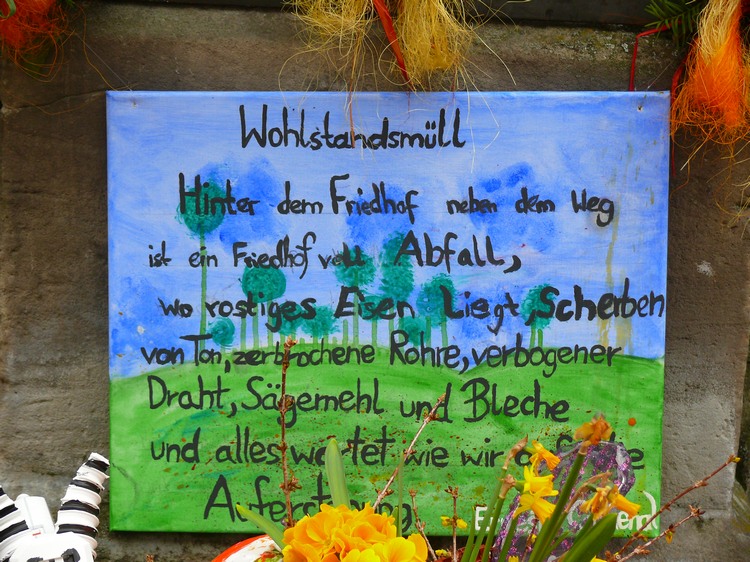 Wohlstandsmüll
Hinter dem Friedhof neben dem Weg
ist ein Friedhof voll Abfall,
wo rostiges Eisen Liegt, Scherben
von Ton, zerbrochene Rohre, verbogener
Draht, Sägemehl und Bleche
und alles wartet wie wir
Auferstehung